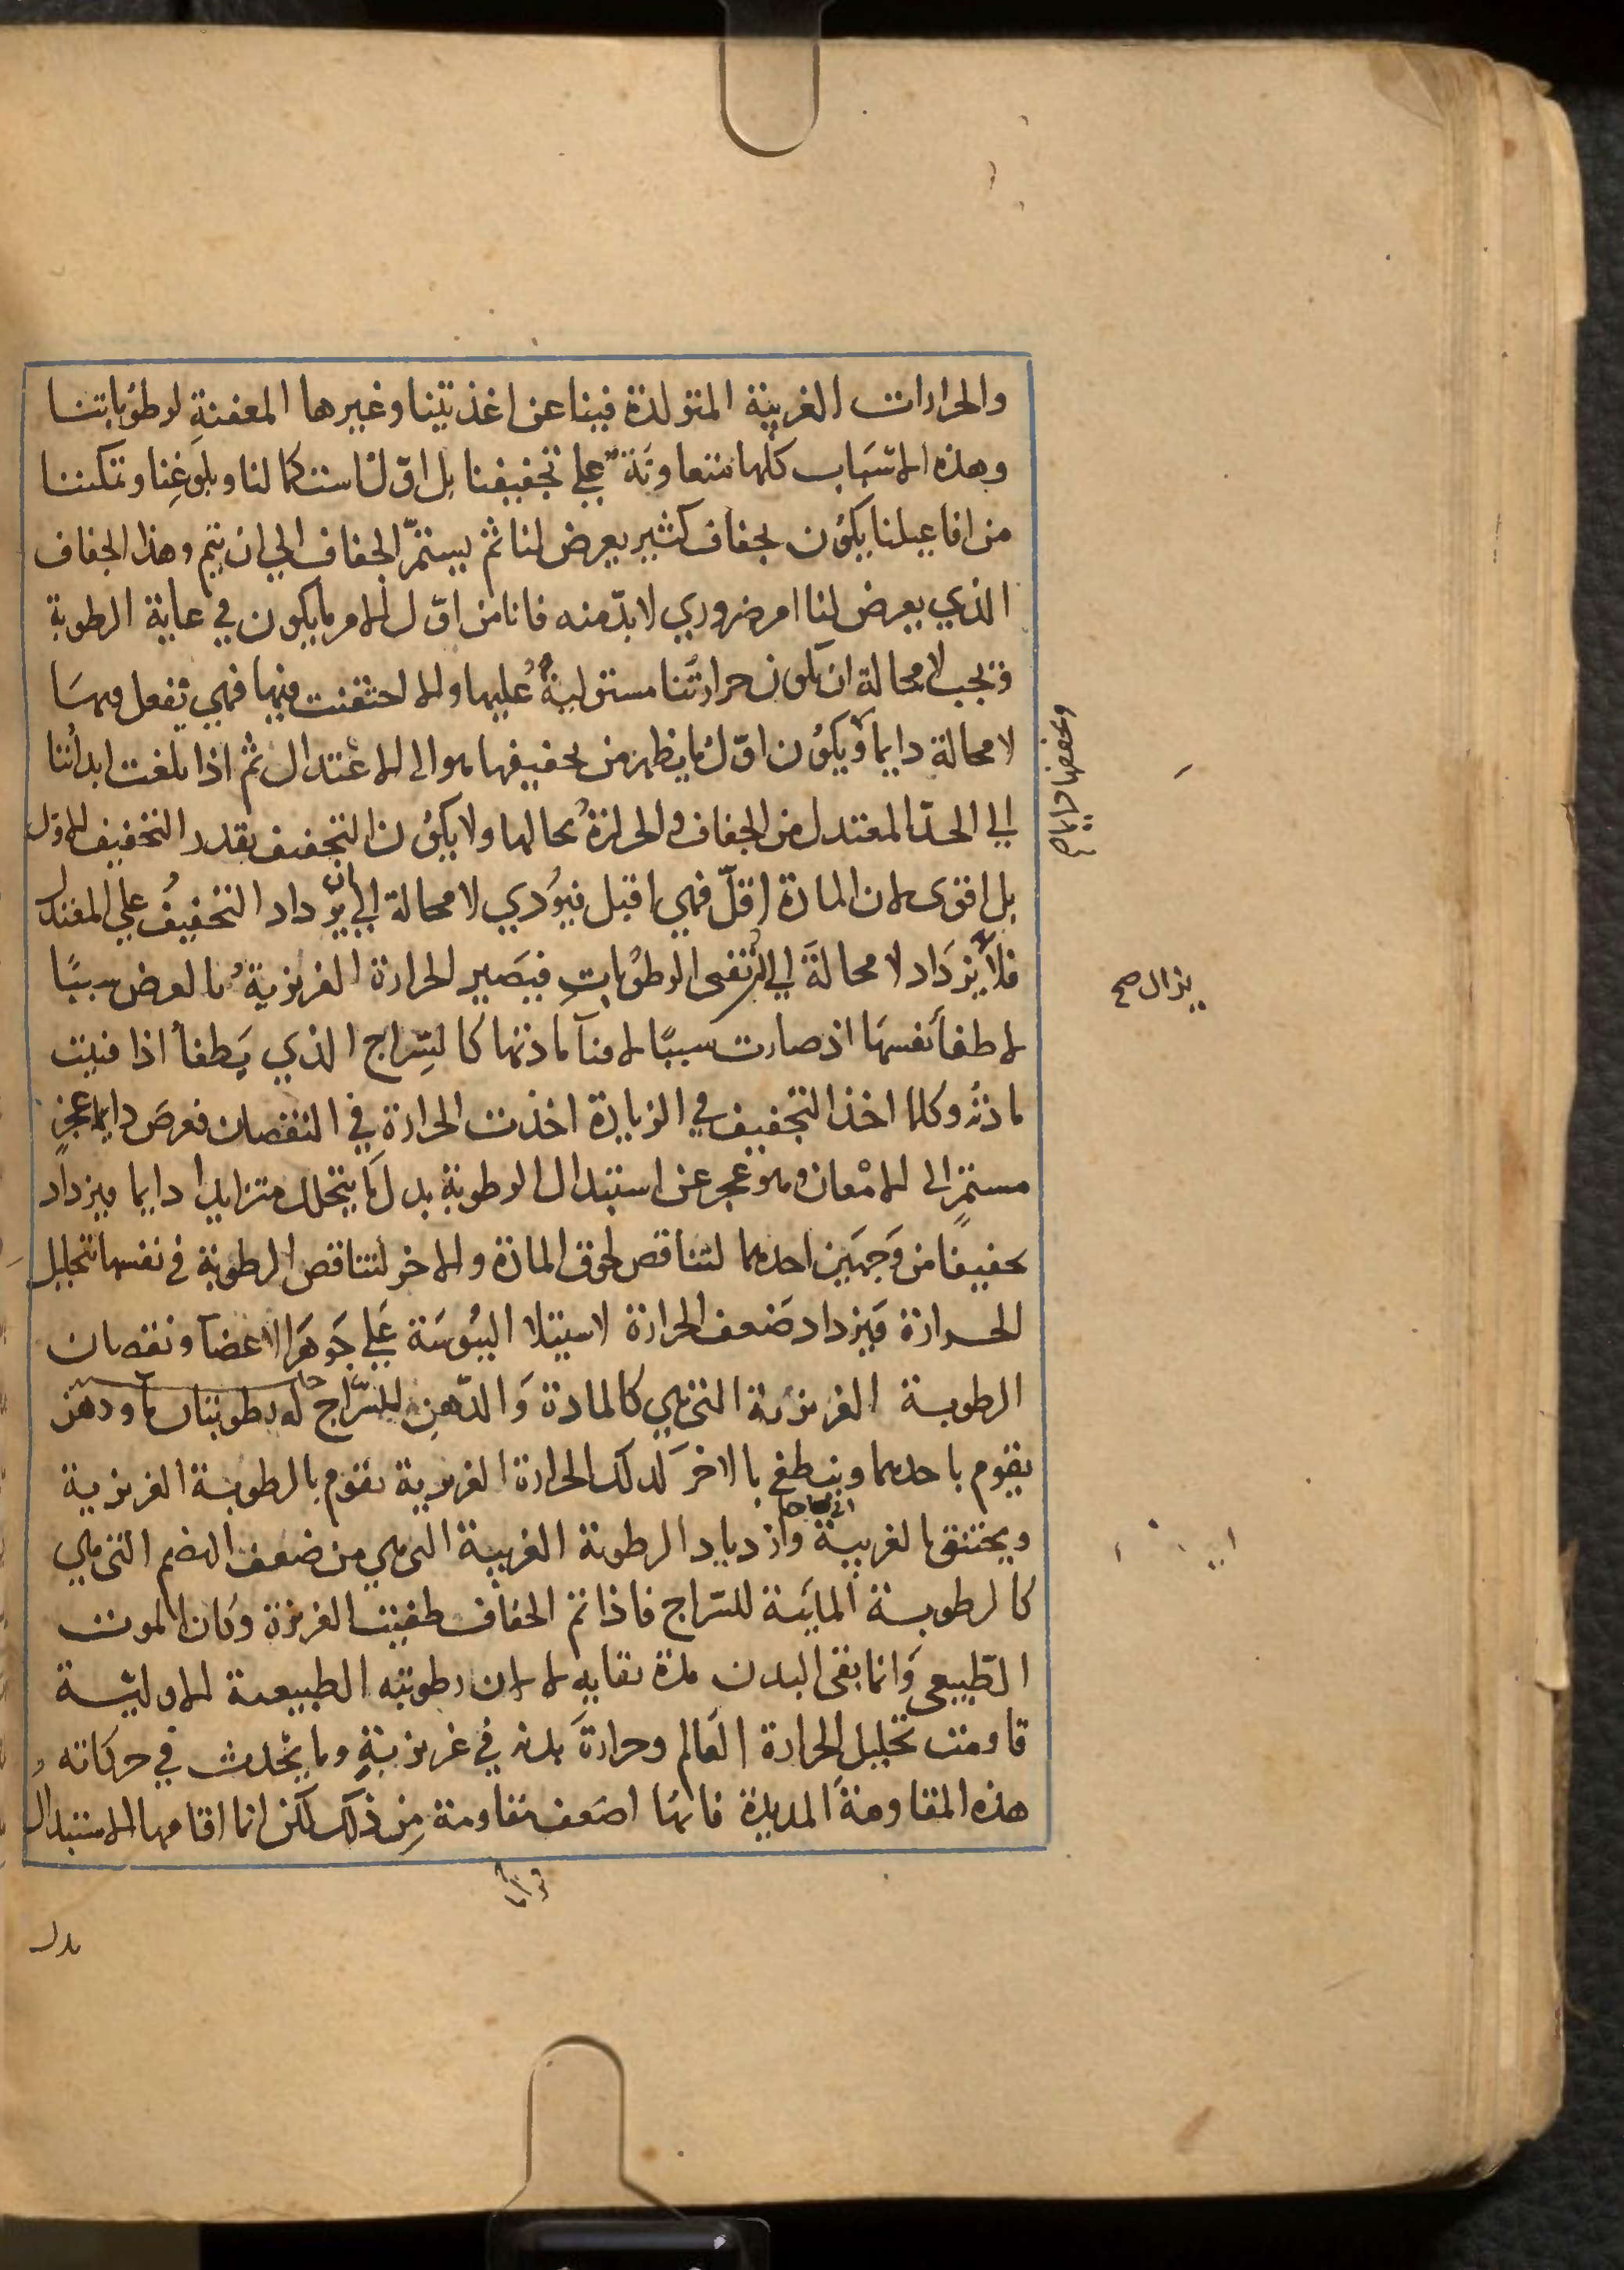 والحرارات الغريبة المتولدة فينا عن اغذيتنا وغيرها المعفنة لرطوباتنا
وهذه الاسباب كلها متعاونة على تجفيفنا بل اول استكمالنا وبلوغنا وتمكننا
من افاعيلنا يكون بجفاف كثير يعرض لنا ثم يستمر الجفاف الى ان يتم وهذا الجفاف
الذي يعرض لنا امر ضروري لا بد منه فانا من اول الامر ما يكون في غاية الرطوبة
فيجب لا محالة ان يكون حرارتنا مستولية عليها والا احتقنت فيها فهي تفعل فيها
لا محالة دايما ويكون اول ما يظهر من تجفيفها هو الى الاعتدال ثم اذا بلغت ابداننا
الى الحد المعتدل من الجفاف والحرارة بحالها ولا يكون التجفيف بقدر التجفيف الاول
بل اقوى لان المادة اقل فهي اقبل فيؤدي لا محالة الى ان يزداد التجفيف على المعتدل
فلا يزداد لا محالة الى ان تفنى الرطوبات فيصير الحرارة الغريزية بالعرض سببا
لاطفا نفسها اذ صارت سببا لافنآ مادتها كالسراج الذي يطفأ اذا فنيت
مادته وكلما اخذ التجفيف في الزيادة اخذت الحرارة في النقصان فعرض دايما عجز
مستمر الى الامعان وهو عجز عن استبدال الرطوبة بدل ما يتحلل متزايدا دايما ويزداد
تجفيفا من وجهين احدهما لتناقص لحوق المادة والاخر لتناقص الرطوبة في نفسها بتحليل
الحرارة فيزداد ضعف الحرارة لاستيلا اليبوسة على جوهر الاعضآ ونقصان
الرطوبة الغريزية التي هي كالمادة والدهن للسراج له رطوبتان مآ ودهن
يقوم باحدهما وينطفي بالاخر كذلك الحرارة الغريزية تقوم بالرطوبة الغريزية
ويختنق بالغريبة وازدياد الرطوبة الغريبة التي هي من ضعف الهضم التي هي
كالرطوبة المائية للسراج فاذا تم الجفاف طفيت الغريزة وكان الموت
الطبيعي وانما بقى البدن مدة بقايه لا لان رطوبته الطبيعية الاولية
قاومت تحليل الحرارة العالم وحرارة بدنه في غريزية وما يحدث في حركاته
هذه المقاومة المديدة فانها اضعف مقاومة من ذلك لكن انما اقامها الاستبدال
بدل
يزال صح